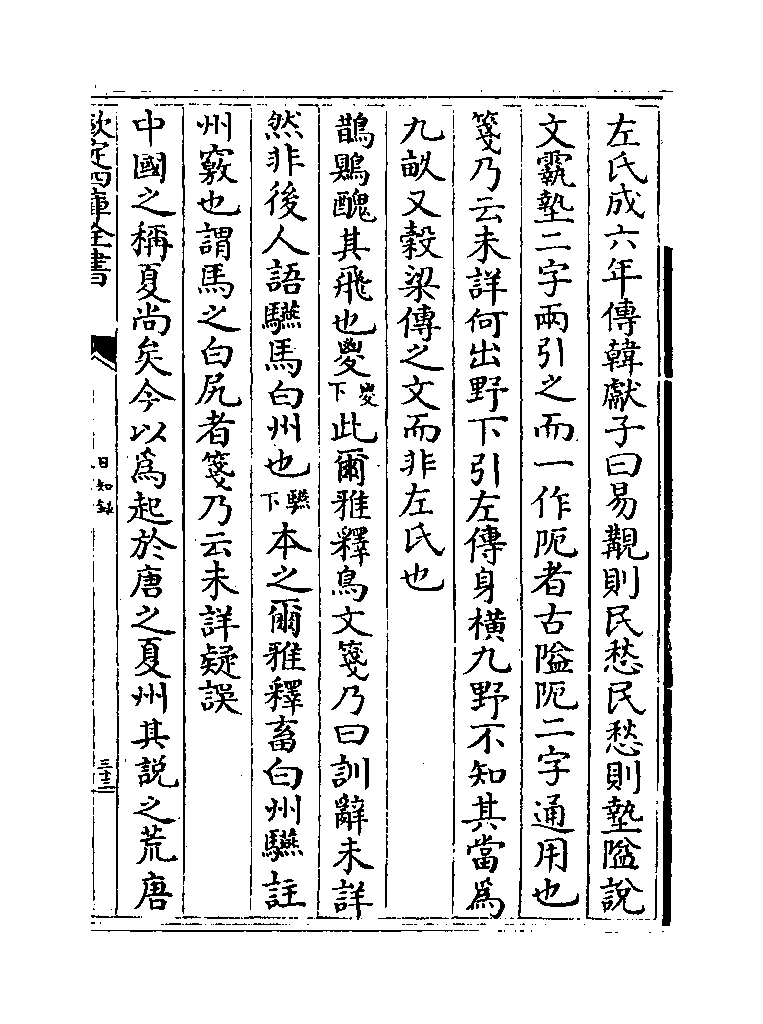 左氏成六年傳韓獻子曰易覯則民愁民愁則墊隘說
文䨴墊二字兩引之而一作阨者古隘阨二字通用也
箋乃云未詳何出野下引左傳身橫九野不知其當爲
九畝又穀梁傳之文而非左氏也
鵲鶪醜其飛也㚇㚇下此爾雅釋鳥文箋乃曰訓辭未詳
然非後人語驠馬白州也驠下本之爾雅釋畜白州驠註
州竅也謂馬之白尻者箋乃云未詳疑誤
中國之稱夏尚矣今以爲起於唐之夏州其說之荒唐
欽定四庫全書
日知錄